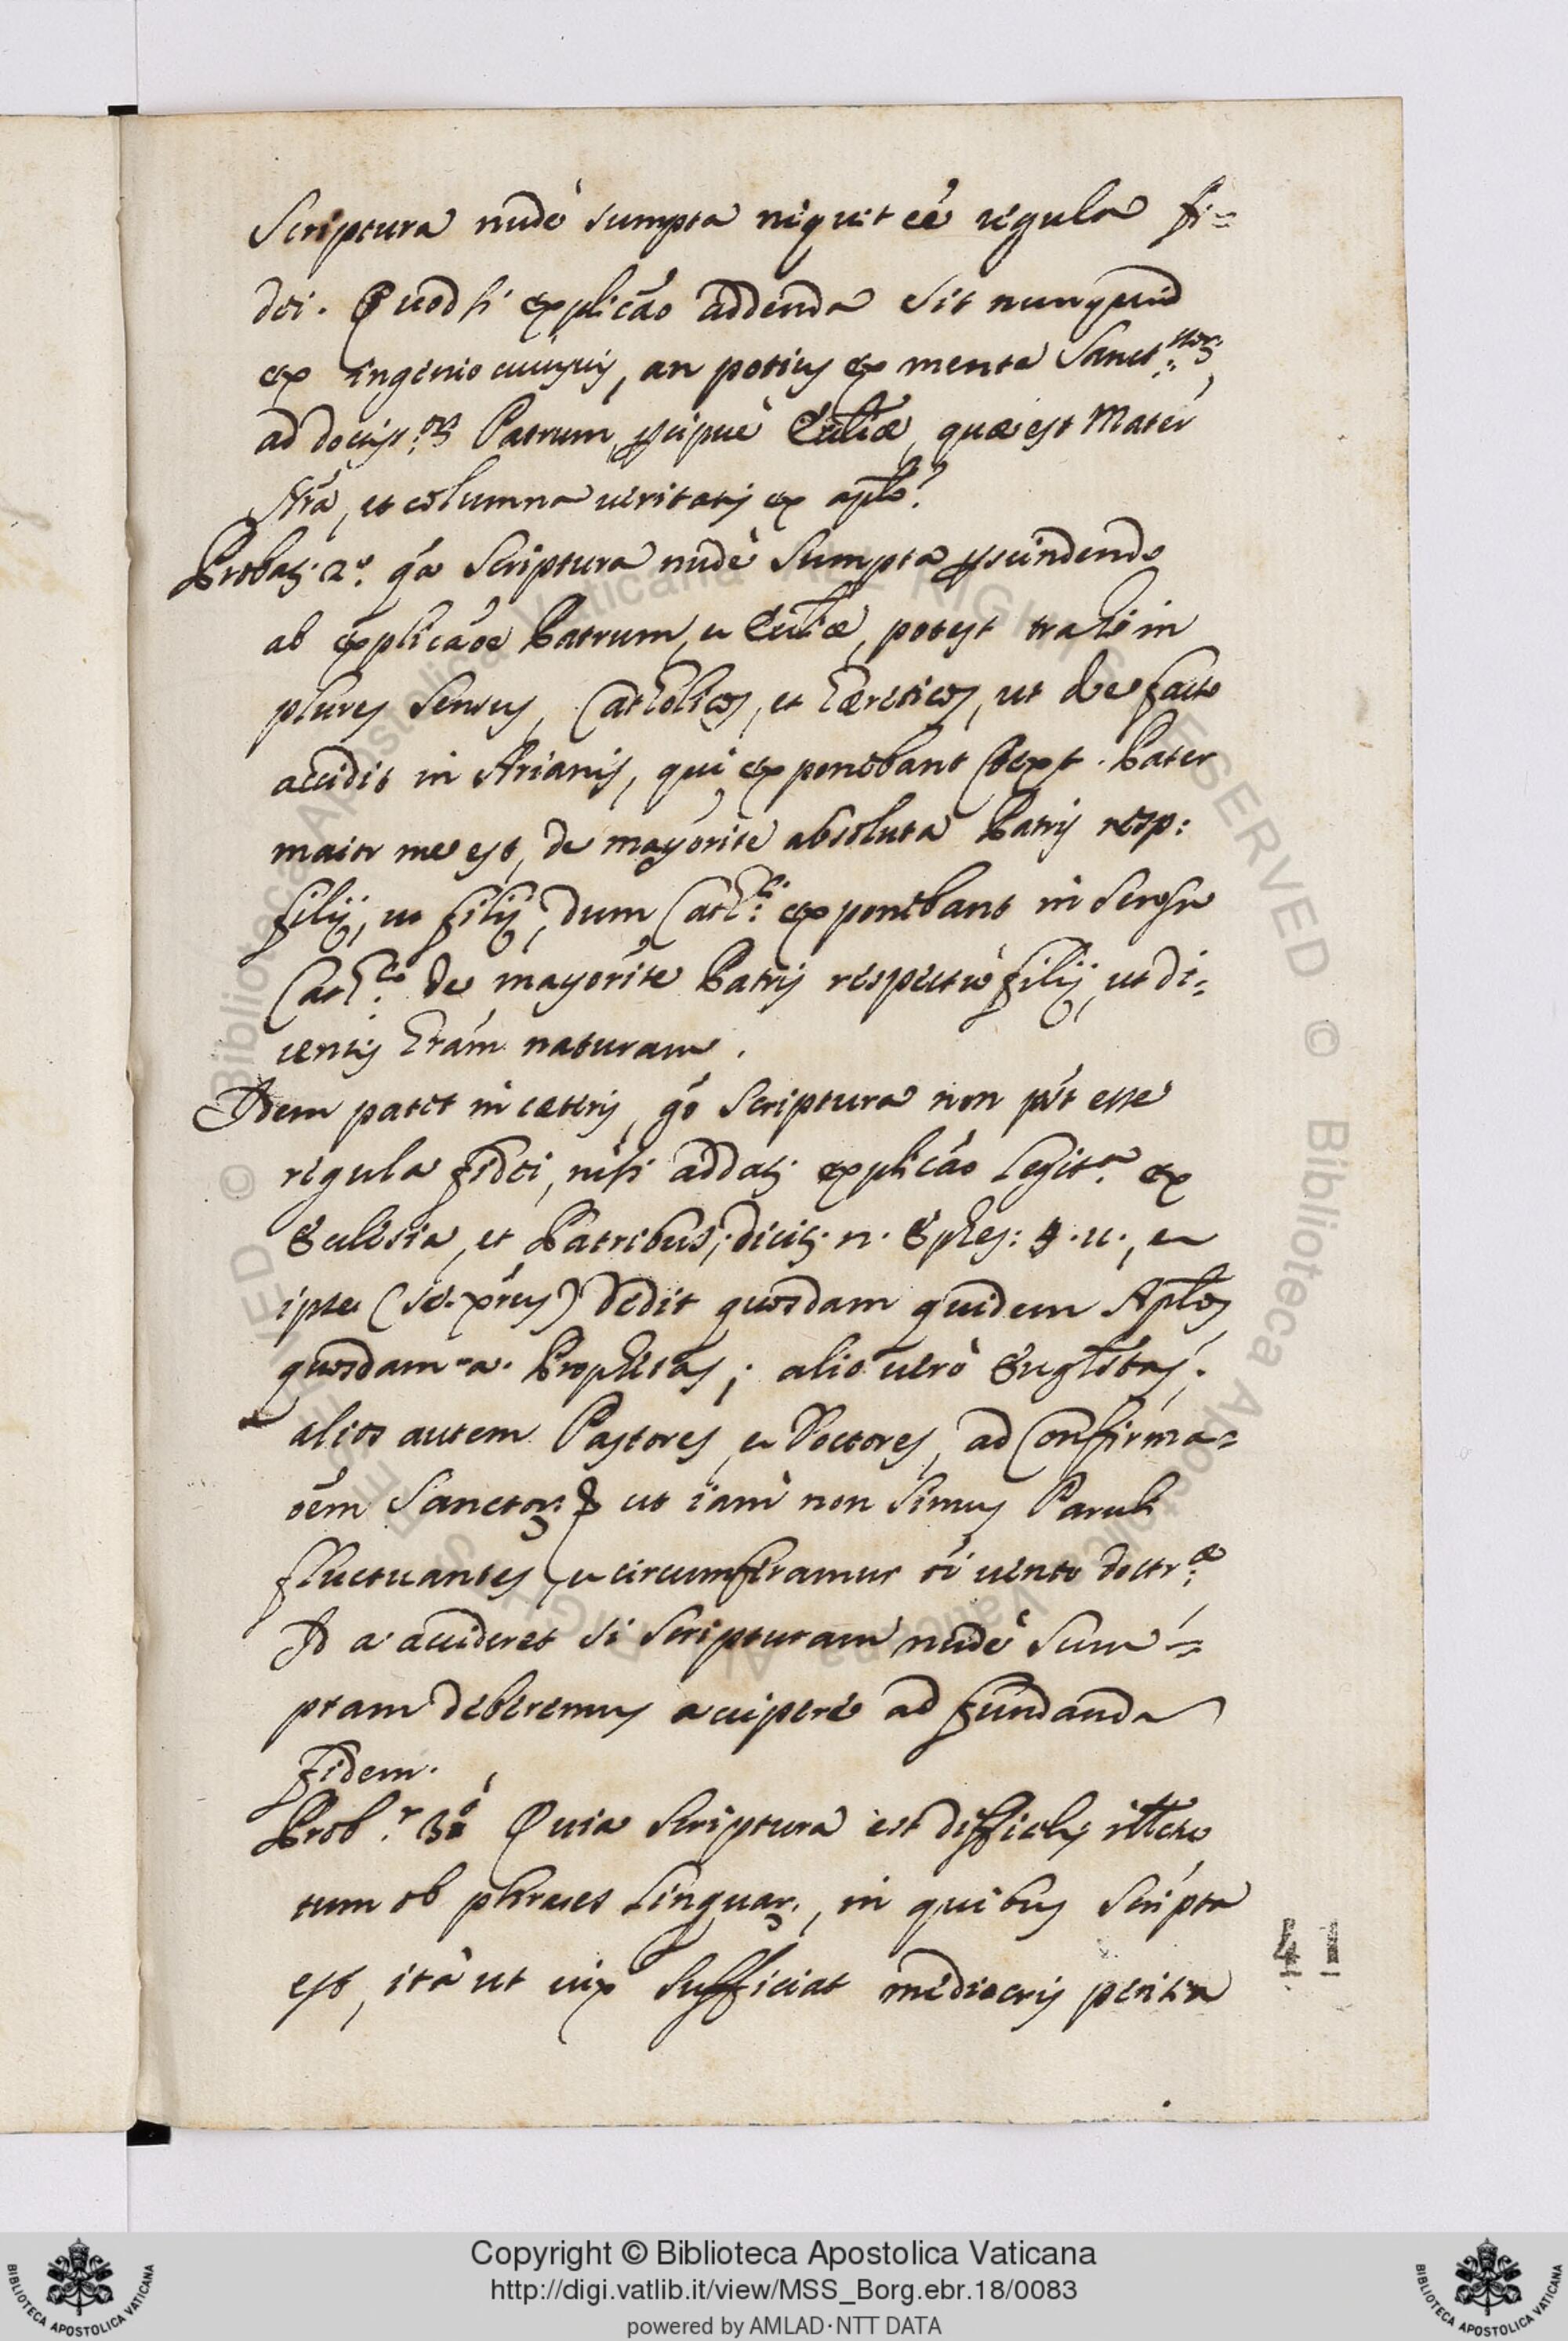 Scriptura nudè sumpta nequit eê regula fi=
dei. Quod si explicâo addenda sit nunquid
ex ingenio cuiusvis, an potius ex mente Sanct.
ad doctiss. Patrum, pcipuè Ecclîae, quae est Mater
Nrâ, et columna veritatis ex aplô?
Probat; 2º. qâ Scriptura nudè sumpta pscindendo
ab explicâoe Patrum, et Ecclîae, potest trahi in
plures sensus, Catholicos, et haereticos, ut de facto
accidit in Arianis, qui exponebant text. Pater
maior me est, de mayorite absoluta Patris resp:
filij, ut filij, dum Cath.ci exponebant in sensu
Cath.co de mayorite Patris respectu filij, ut di=
centis hrâm naturam.
Idem patet in caeteris, gô Scriptura non pôt esse
regula fidei, nisi addat; explicâo legit.a ex
Ecclesia, et Patribus; dicit; n. Ephes: 4. 11., et
ipse (sc. xprûs) dedit quosdam quidem Aplôs
quosdam a. Prophetas; alio verò Evglîstas;
alios autem Pastores, et Doctores, ad Confirma=
oêm Sanctor; ut iam non simus Parvuli
fluctuantes, et circumferamur oî vento doctr.ae
Id a. accideret si Scripturam nudè sum=
ptam deberemus accipere ad fundanda
fidem.
Prob.r 3º Quia Scriptura est difficilis
tum ob phrases linguar;, in quibus scripta
est, ità ut vix sufficiat mediocris peritia
41
Copyright © Biblioteca Apostolica Vaticana
http://digi.vatlib.it/view/MSS_Borg.ebr.18/0083
powered by AMLAD·NTT DATA